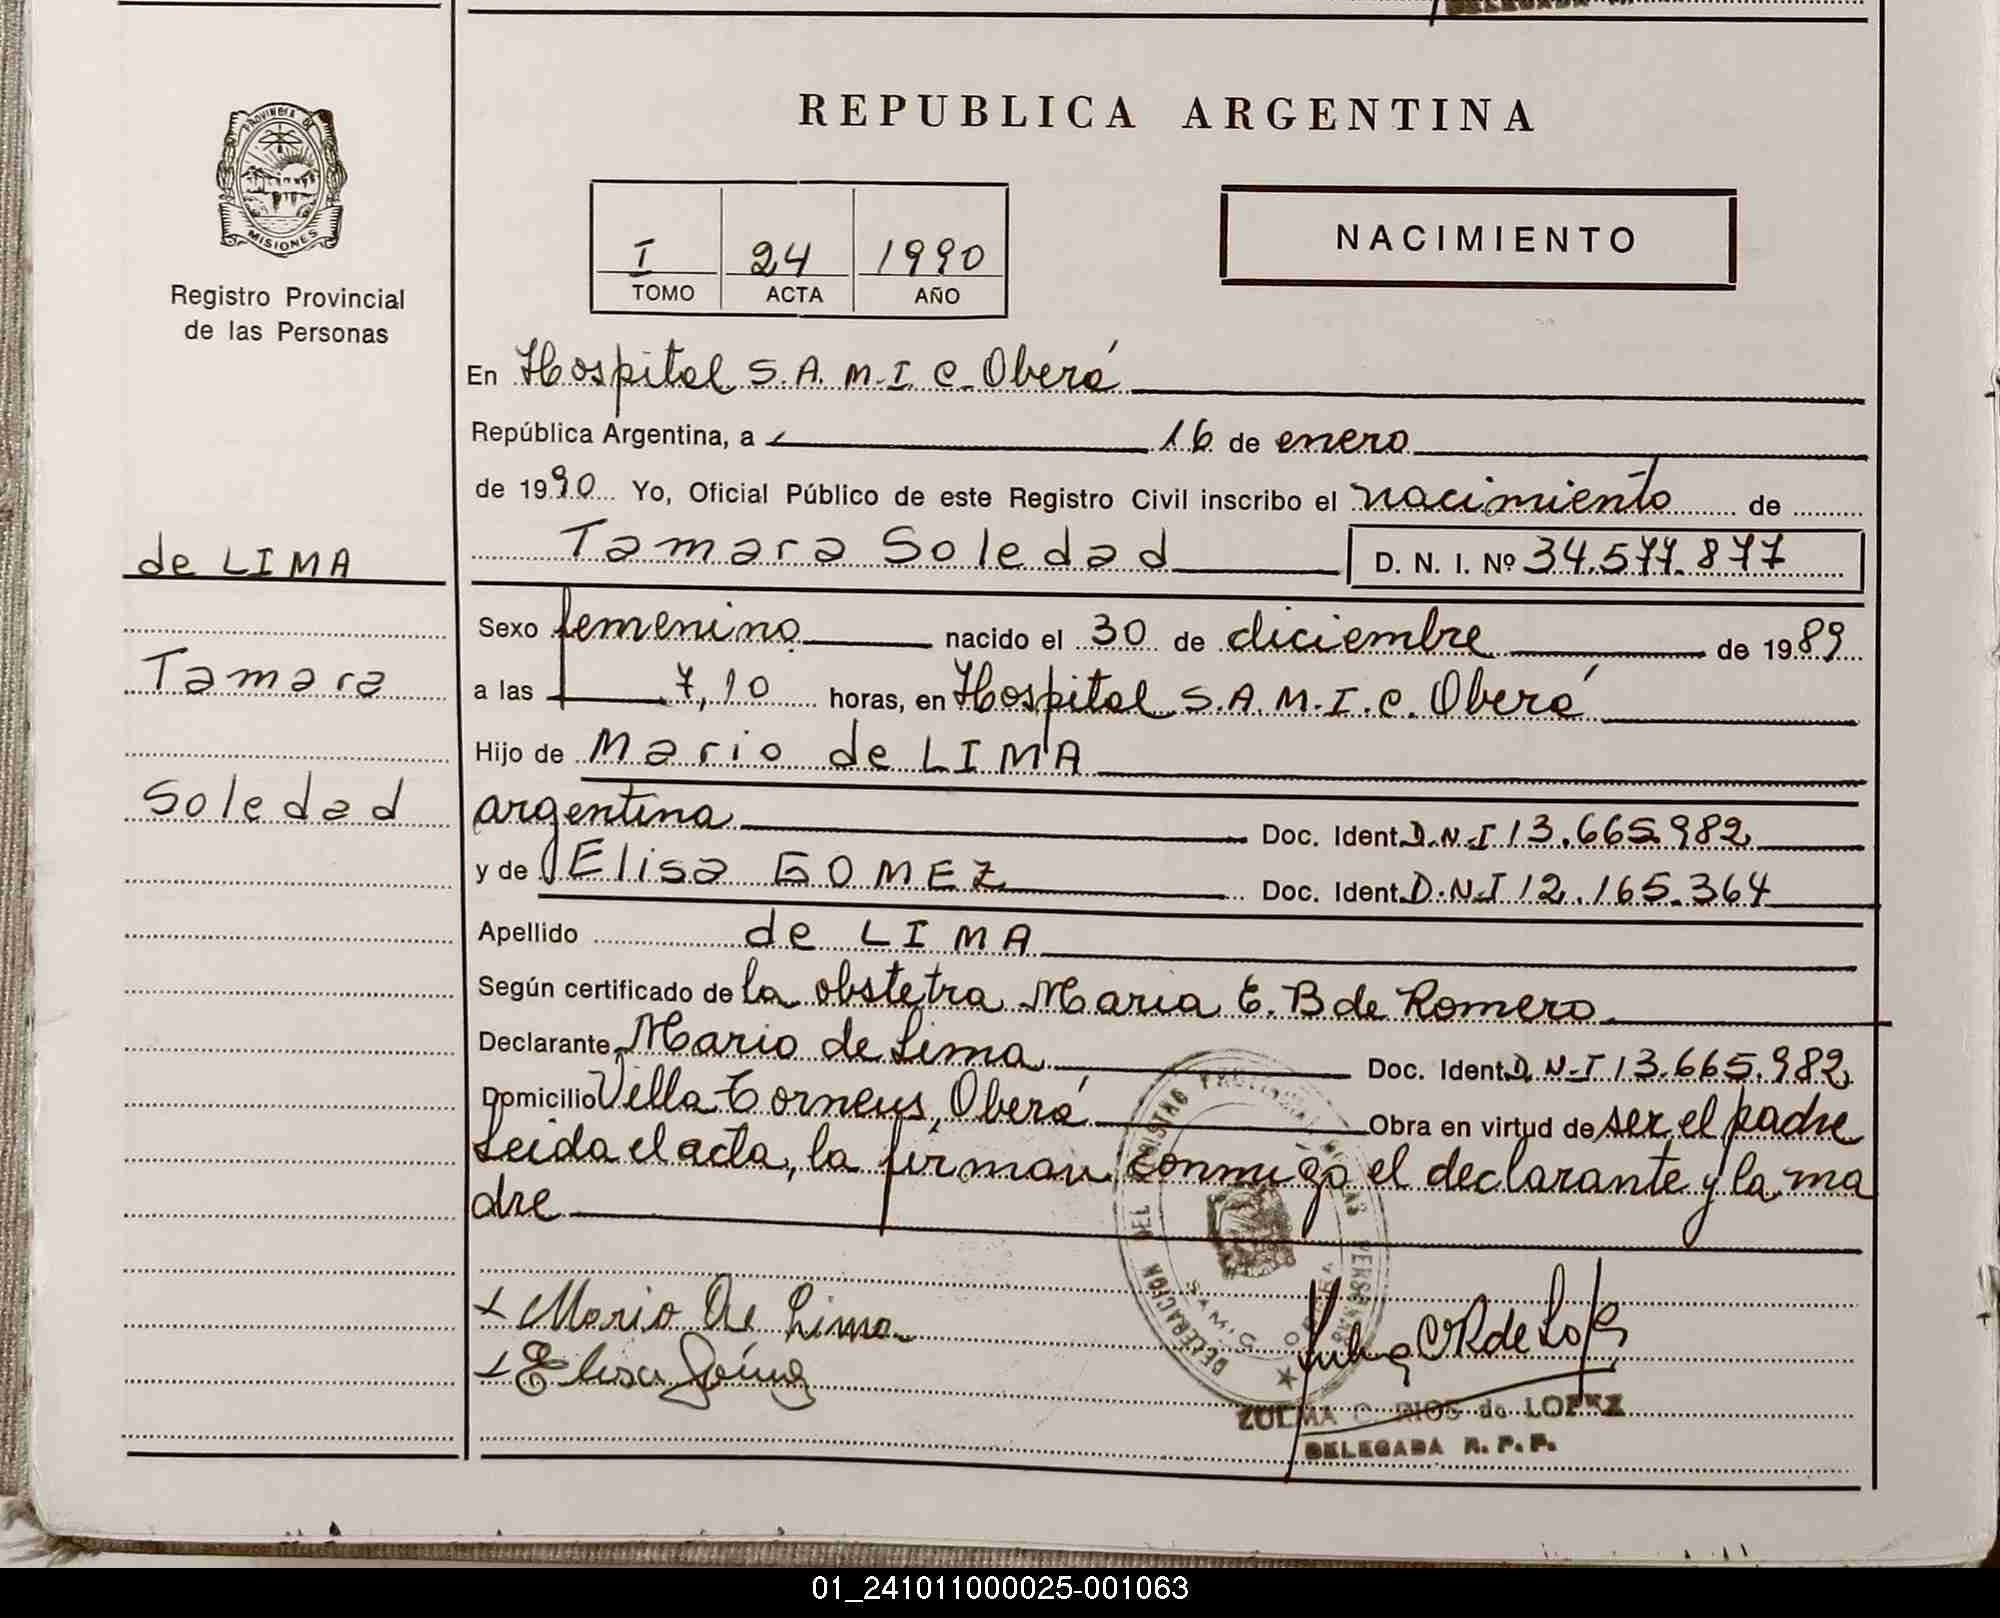 REPUBLICA ARGENTINA
PROVINCIA DE
MISIONES
Registro Provincial
de las Personas
I 24 1990
TOMO ACTA AÑO
NACIMIENTO
En Hospital S.A.M.I.C. Oberá
República Argentina, a 16 de enero
de 1990 Yo, Oficial Público de este Registro Civil inscribo el nacimiento de
de LIMA
Tamara Soledad D. N. I. Nº 34.577.877
Sexo femenino nacido el 30 de diciembre de 1989
Tamara
a las 7,10 horas, en Hospital S.A.M.I.C. Oberá
Hijo de Mario de LIMA
Soledad
argentina Doc. Ident. D.N.I 13.665.982
y de Elisa GOMEZ Doc. Ident. D.N.I 12.165.364
Apellido de LIMA
Según certificado de la obstetra Maria E. B de Romero
Declarante Mario de Lima Doc. Ident. D.N.I 13.665.982
Domicilio Villa Torneus, Oberá Obra en virtud de ser el padre
Leida el acta, la firman conmigo el declarante y la ma
dre
Mario De Lima
Elisa Gómez
DEL REGISTRO PROVINCIAL DE LAS PERSONAS
SAMIC OBERA
ZULMA C. RIOS de LOPEZ
DELEGADA R. P. P.
01_241011000025-001063